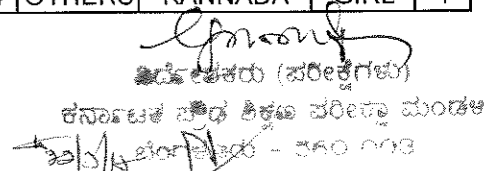 OTHERS KANNADA GIRL
ನಿರ್ದೇಶಕರು (ಪರೀಕ್ಷೆಗಳು)
ಕರ್ನಾಟಕ ಪ್ರೌಢ ಶಿಕ್ಷಣ ಪರೀಕ್ಷಾ ಮಂಡಳಿ
ಬೆಂಗಳೂರು - ೫೬೦ ೦೦೩